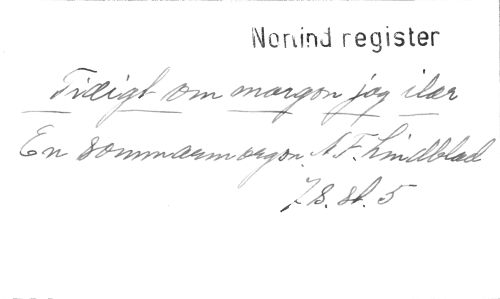 Norlind register
Tidigt om morgon jag ilar
En sommarmorgon. A. F. Lindblad
7 s. st. 5